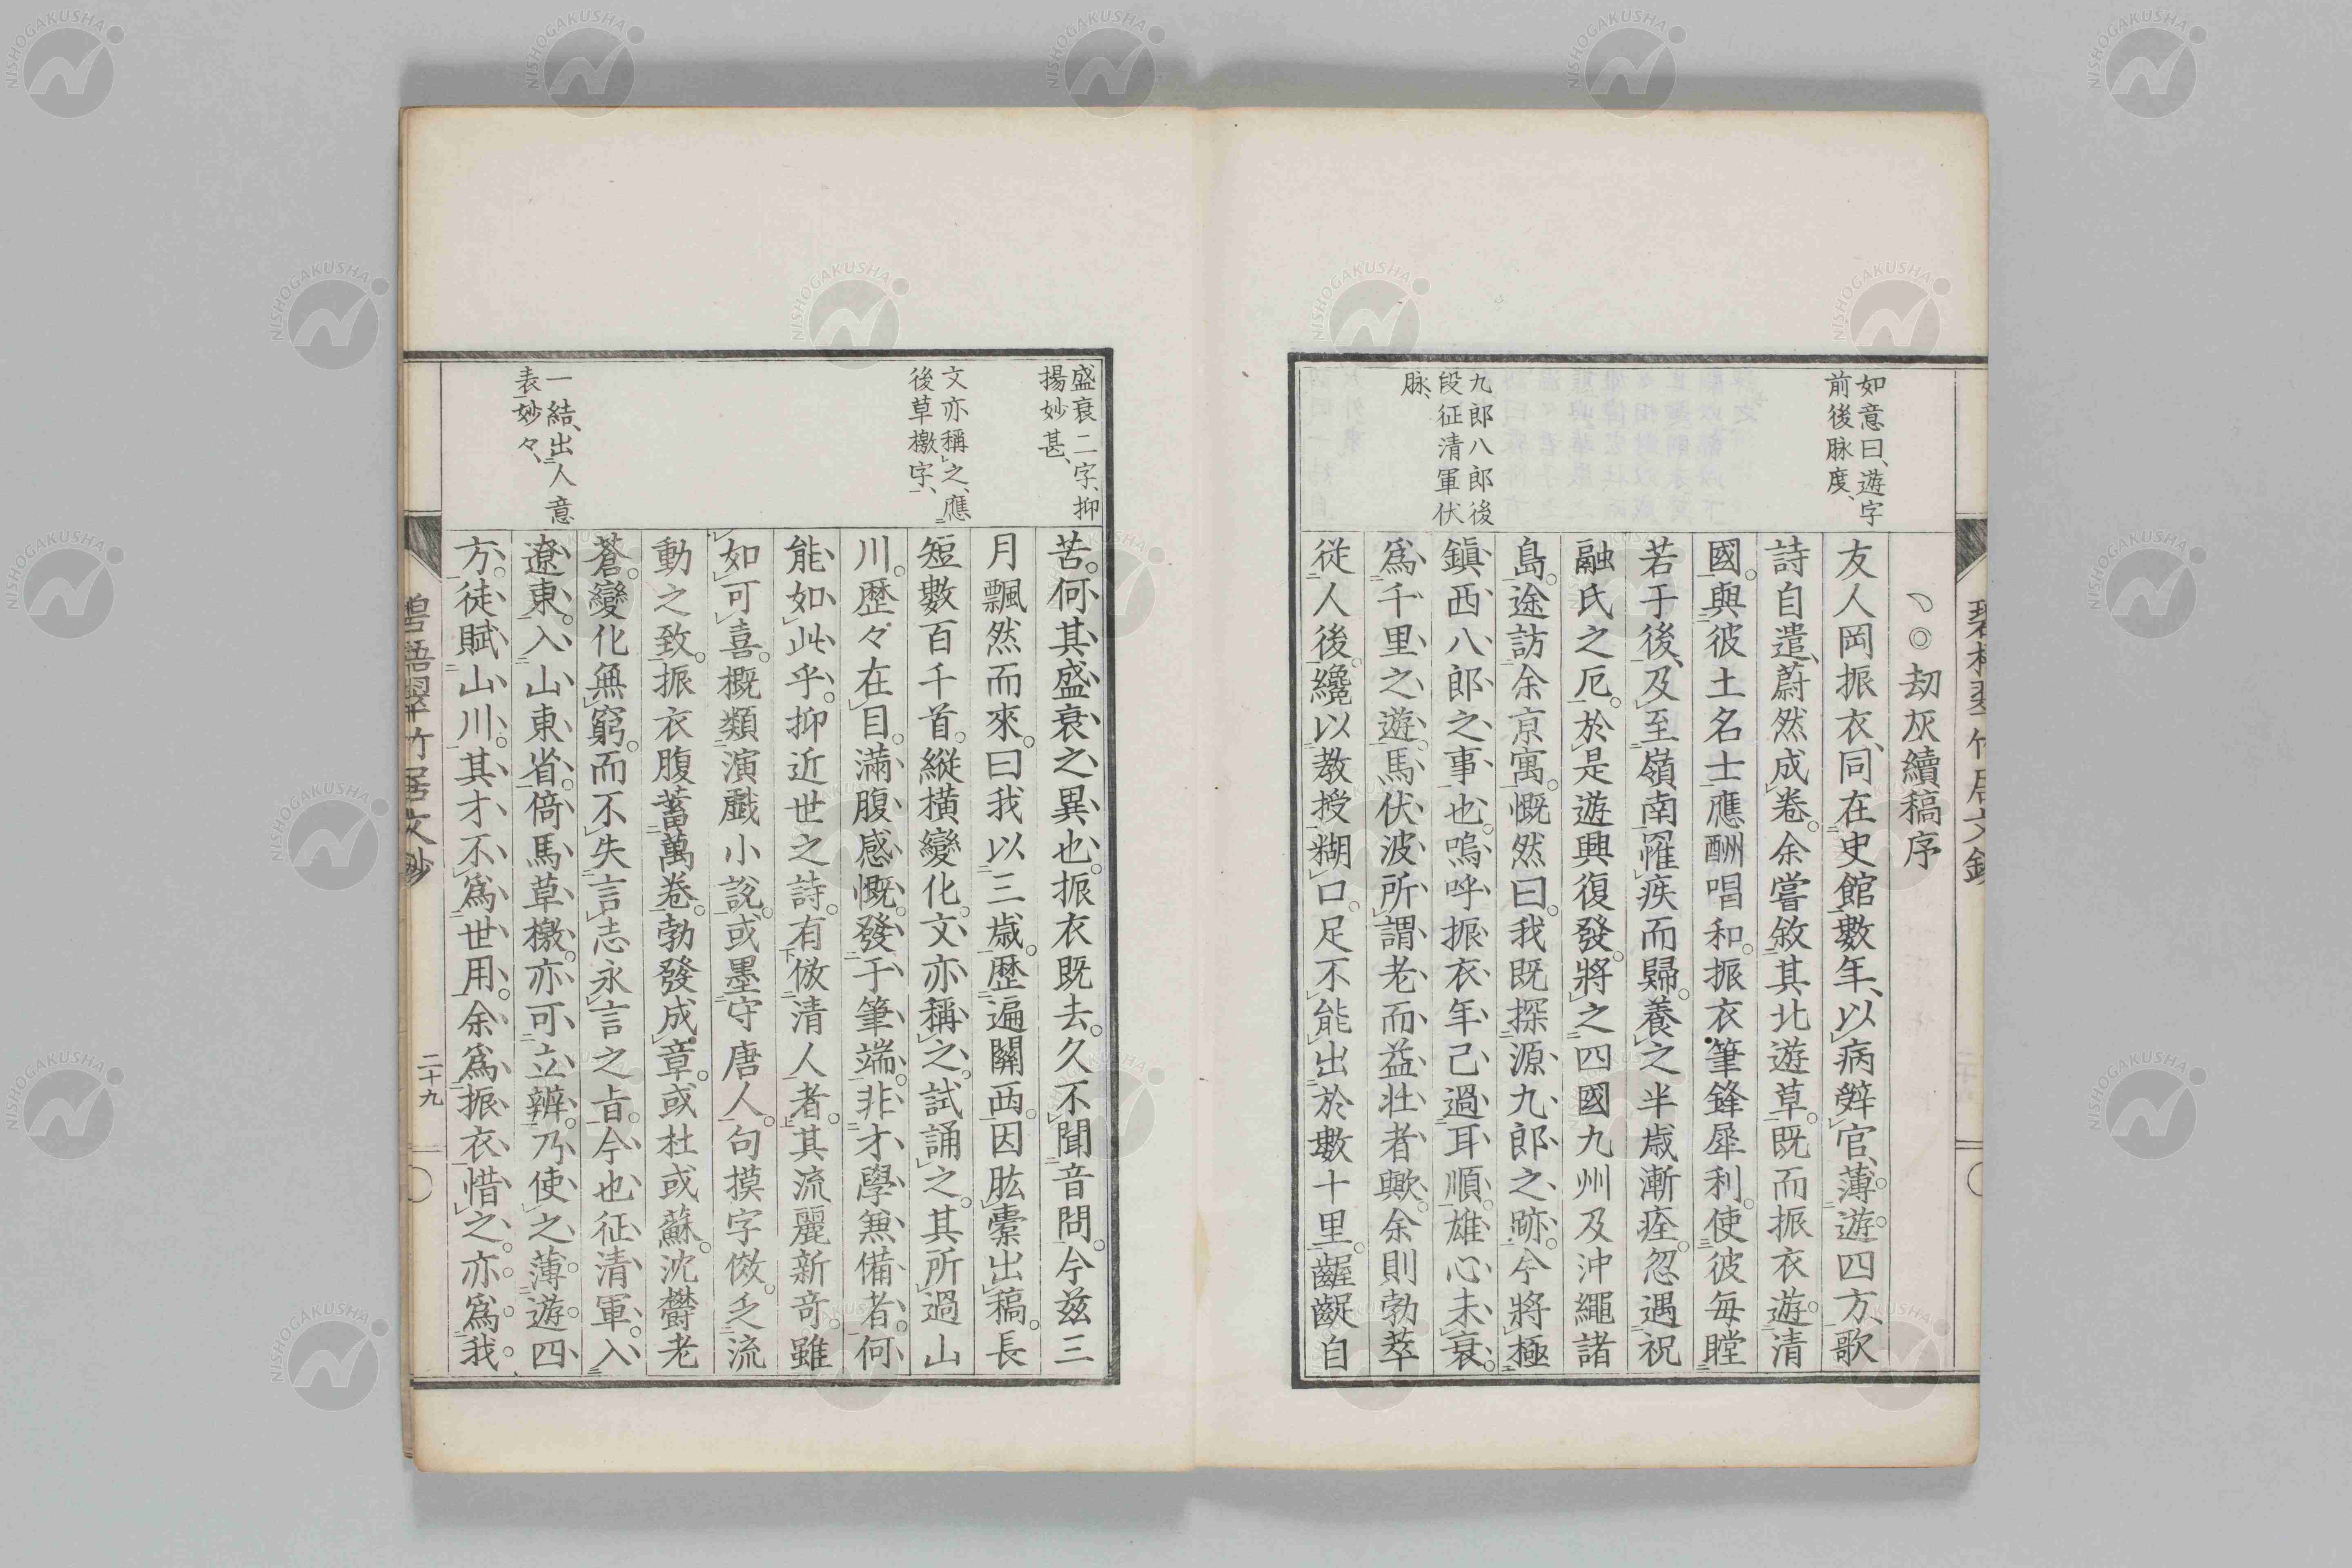 劫灰續稿序
友人岡振衣、同在史館數年、以病辤官、薄遊四方、歌
詩自遣、蔚然成卷。余嘗敘其北遊草。既而振衣遊清
國。與彼土名士應酬唱和。振衣筆鋒犀利。使彼每瞠
若于後、及至嶺南罹疾而歸。養之半歳漸痊。忽遇祝
融氏之厄。於是遊興復發。將之四國九州及沖繩諸
島。途訪余京寓。慨然曰。我既探源九郎之跡。今將極
鎭西八郎之事也。嗚呼振衣年己過耳順。雄心未衰。
爲千里之遊。馬伏波所謂老而益壯者歟。余則勃萃
從人後。纔以教授糊口。足不能出於數十里。齷齪自
如意曰、遊字
前後脉度、
九郎八郎後
段征清軍伏
脉、
苦。何其盛衰之異也。振衣既去。久不聞音問。今茲三
月飄然而來。曰我以三歳。歴遍關西。因胠橐出稿。長
短數百千首。縱橫變化。文亦稱之。試誦之。其所過山
川。歴々在目。滿腹感慨。發于筆端。非才學無備者。何
能如此乎。抑近世之詩。有倣清人者。其流麗新奇。雖
如可喜。概類演戲小說。或墨守唐人。句摸字倣。乏流
動之致。振衣腹蓄萬卷。勃發成章。或杜或蘇。沈欝老
蒼。變化無窮。而不失言志永言之旨。今也征清軍。入
遼東。入山東省。倚馬草檄。亦可立辨。乃使之薄遊四
方。徒賦山川。其才不爲世用。余爲振衣惜之。亦爲我
盛衰二字、抑
揚妙甚、
文亦稱之、應
後草檄字、
一結、出人意
表、妙々、
碧梧翠竹居文鈔
二十九
NISHOGAKUSHA